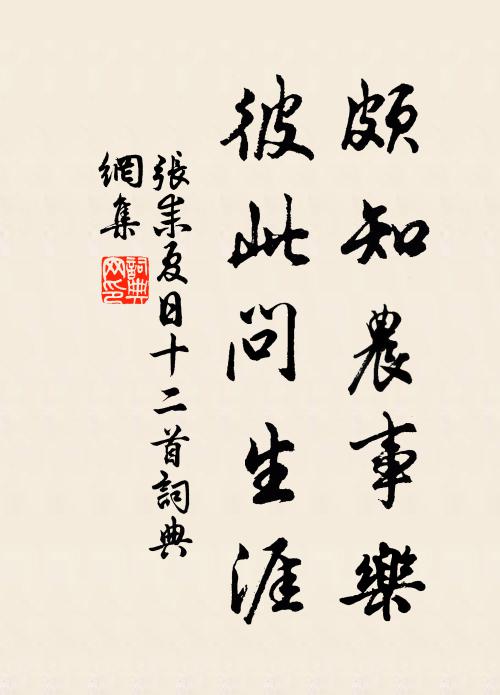 頗知農事樂
彼此問生涯
張耒夏日十二首詞典
網集
詞典
网印